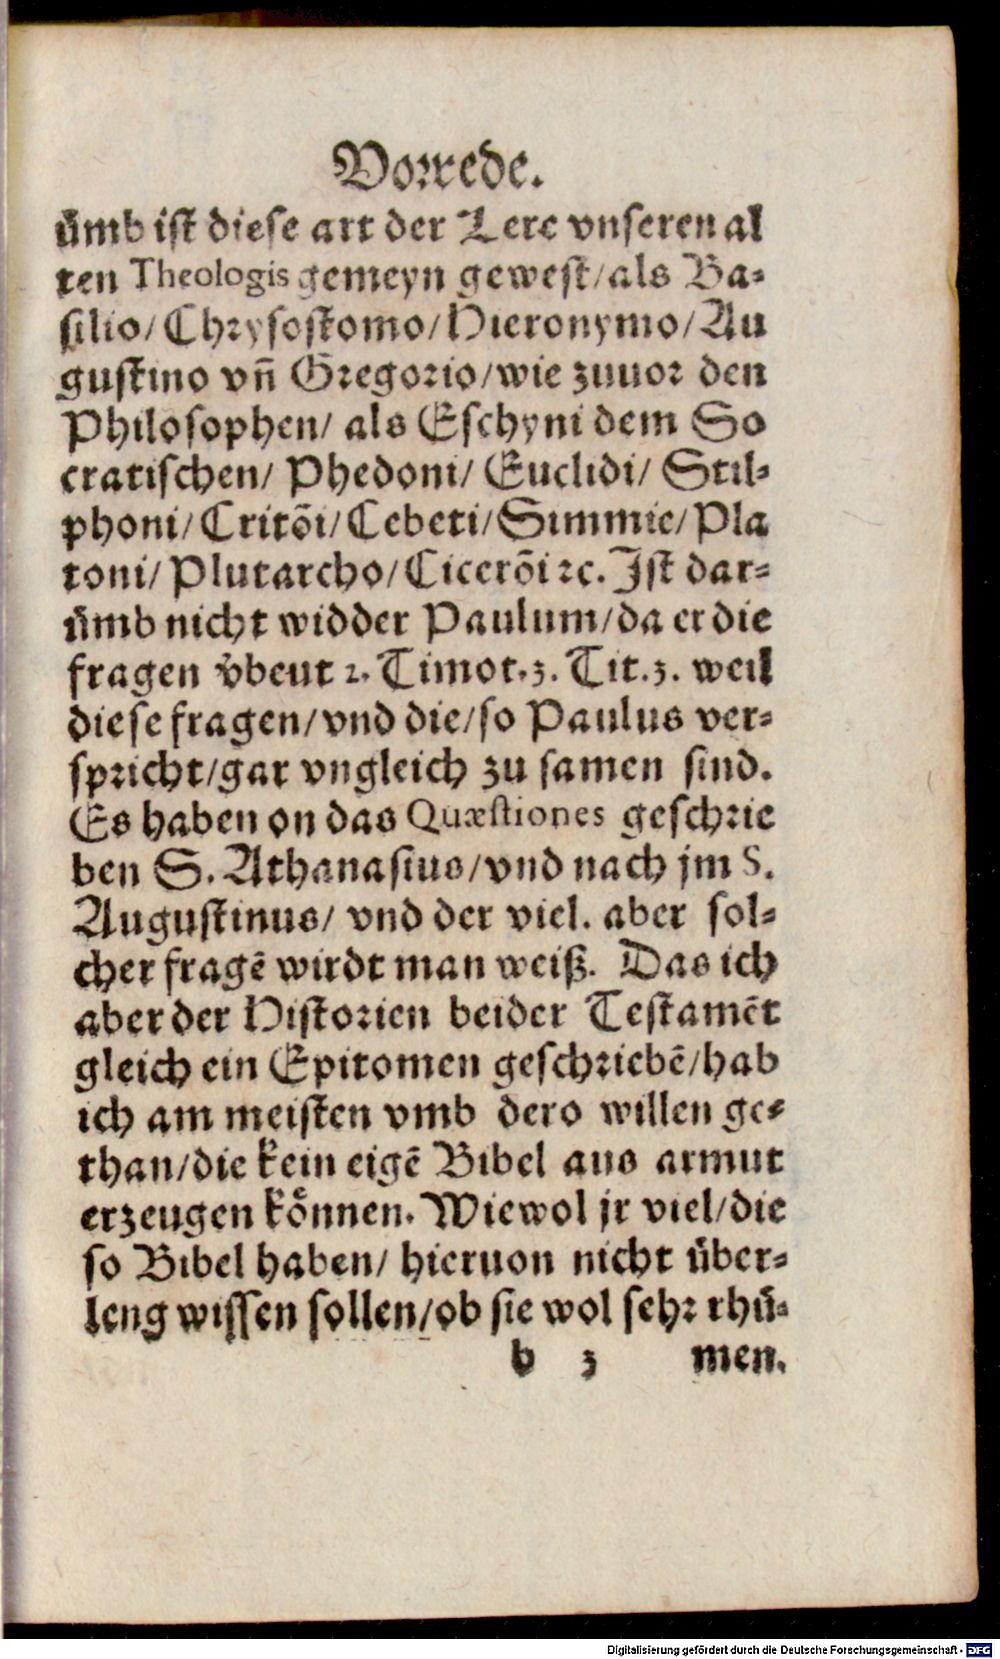 Vorrede.
ümb ist diese art der Lere vnseren al
ten Theologis gemeyn gewest/als Ba-
silio/Chrysostomo/Hieronymo/Au
gustino vn̄ Gregorio/wie zuuor den
Philosophen/ als Eschyni dem So
cratischen/ Phedoni/ Euclidi/ Stil-
phoni/Critōi/Cebeti/Simmie/Pla
toni/Plutarcho/Cicerōi ꝛc. Ist dar-
ümb nicht widder Paulum/da er die
fragen v̊beut 2. Timot.3. Tit.3. weil
diese fragen/vnd die/so Paulus ver-
spricht/gar vngleich zu samen sind.
Es haben on das Quæstiones geschrie
ben S. Athanasius/vnd nach jm S.
Augustinus/ vnd der viel. aber sol-
cher fragē wirdt man weiß. Das ich
aber der Historien beider Testamēt
gleich ein Epitomen geschriebē/hab
ich am meisten vmb dero willen ge-
than/die kein eigē Bibel aus armut
erzeugen können. Wiewol jr viel/die
so Bibel haben/ hieruon nicht über-
leng wissen sollen/ob sie wol sehr rhü-
b 3 men.
Digitalisierung gefördert durch die Deutsche Forschungsgemeinschaft - DFG